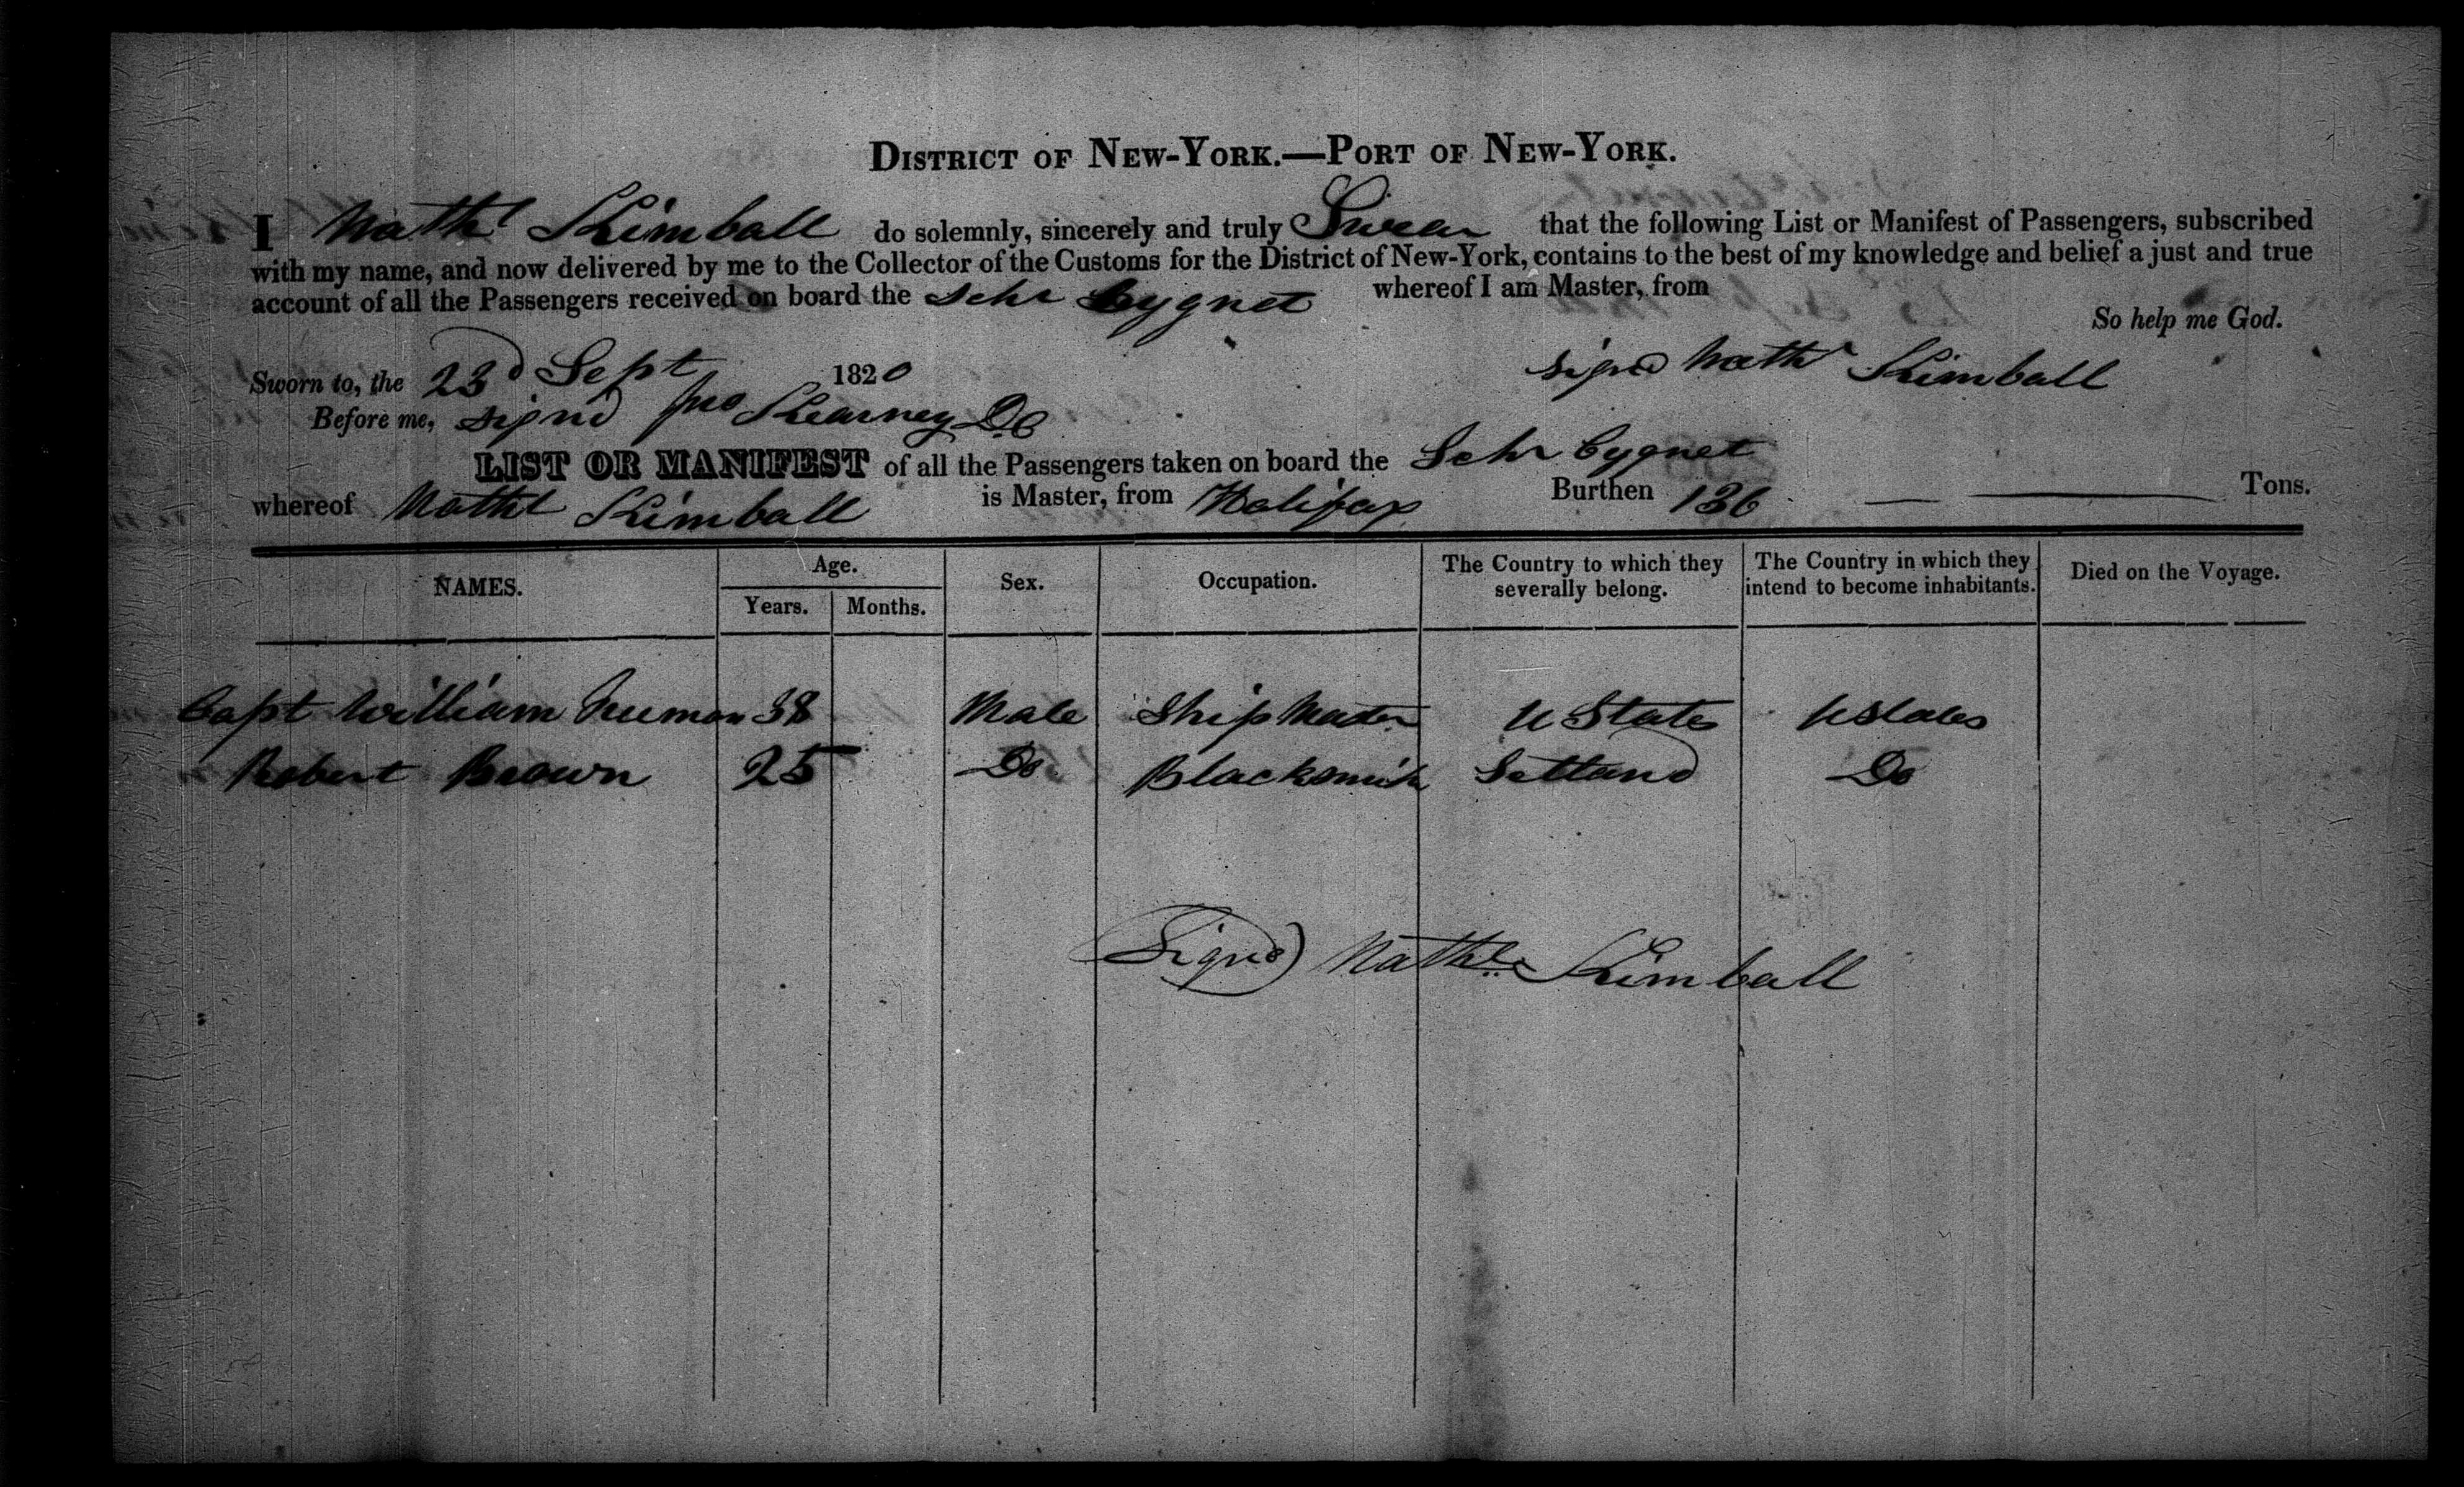 DISTRICT OF NEW-YORK.—PORT OF NEW-YORK.
I Nathl Kimball do solemnly, sincerely and truly Swear that the following List or Manifest of Passengers, subscribed
with my name, and now delivered by me to the Collector of the Customs for the District of New-York, contains to the best of my knowledge and belief a just and true
account of all the Passengers received on board the Schr Cygnet whereof I am Master, from
So help me God.
Sworn to, the 23d Sept 1820 signd Nathl Kimball
Before me, signd Jno Kearney DC
LIST OR MANIFEST of all the Passengers taken on board the Schr Cygnet
whereof Nathl Kimball is Master, from Halifax Burthen 136 Tons.
NAMES. Age. Sex. Occupation. The Country to which they severally belong. The Country in which they intend to become inhabitants. Died on the Voyage.
Years. Months.
Capt William 38 Male Ship Master U States U States
Robert Brown 25 Do Blacksmith Do
Signd) Nathl Kimball